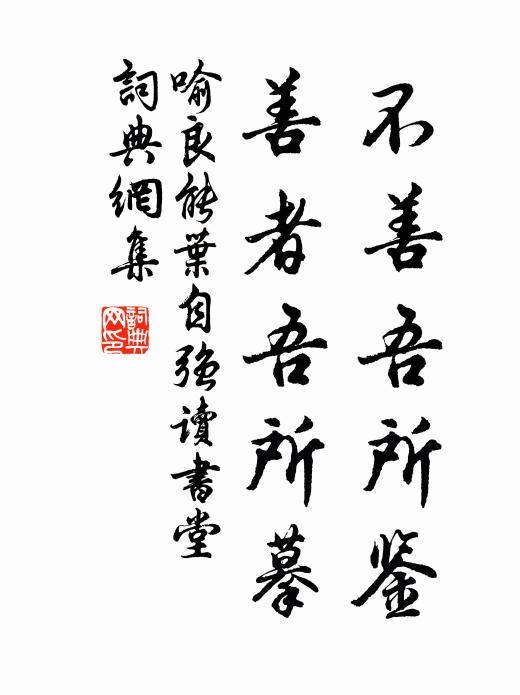 不善吾所鉴
善者吾所摹
喻良能葉自強讀書堂
詞典網集
詞典网印